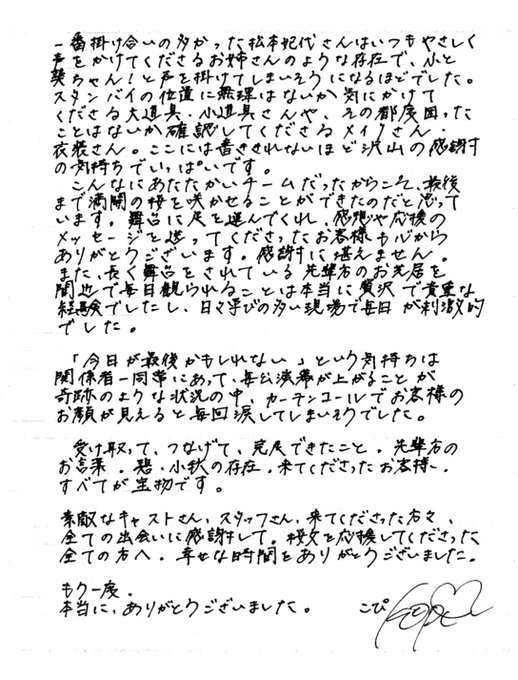 一番掛け合いの多かった松本妃代さんはいつもやさしく
声をかけてくださるお姉さんのような存在で、小と
葵ちゃん!と声を掛けてしまいそうになるほどでした。
スタンバイの位置に無理はないか気にかけて
くださる大道具・小道具さんや、その都度困った
ことはないか確認してくださるメイクさん・
衣装さん。ここには書ききれないほど沢山の感謝
の気持ちでいっぱいです。
こんなにあたたかいチームだったからこそ、最後
まで満開の桜を咲かせることができたのだと思って
います。舞台に足を運んでくれ、感想や応援の
メッセージを送ってくださったお客様も心から
ありがとうございます。感謝に堪えません。
また、長く舞台をされている先輩方のお芝居を
間近で毎日観られることは本当に贅沢で貴重な
経験でしたし、日々学びの多い現場で毎日が刺激的
でした。
「今日が最後かもしれない」という気持ちは
関係者一同常にあって、毎公演幕が上がることが
奇跡のような状況の中、カーテンコールでお客様の
お顔が見えると毎回涙してしまいそうでした。
受け取って、つなげて、完走できたこと。先輩方の
お言葉。 小秋の存在。来てくださったお客様。
すべてが宝物です。
素敵なキャストさん、スタッフさん、来てくださった方々、
全ての出会いに感謝して。桜文を応援してくださった
全ての方へ。幸せな時間をありがとうございました。
もう一度。
本当に、ありがとうございました。 こぴ